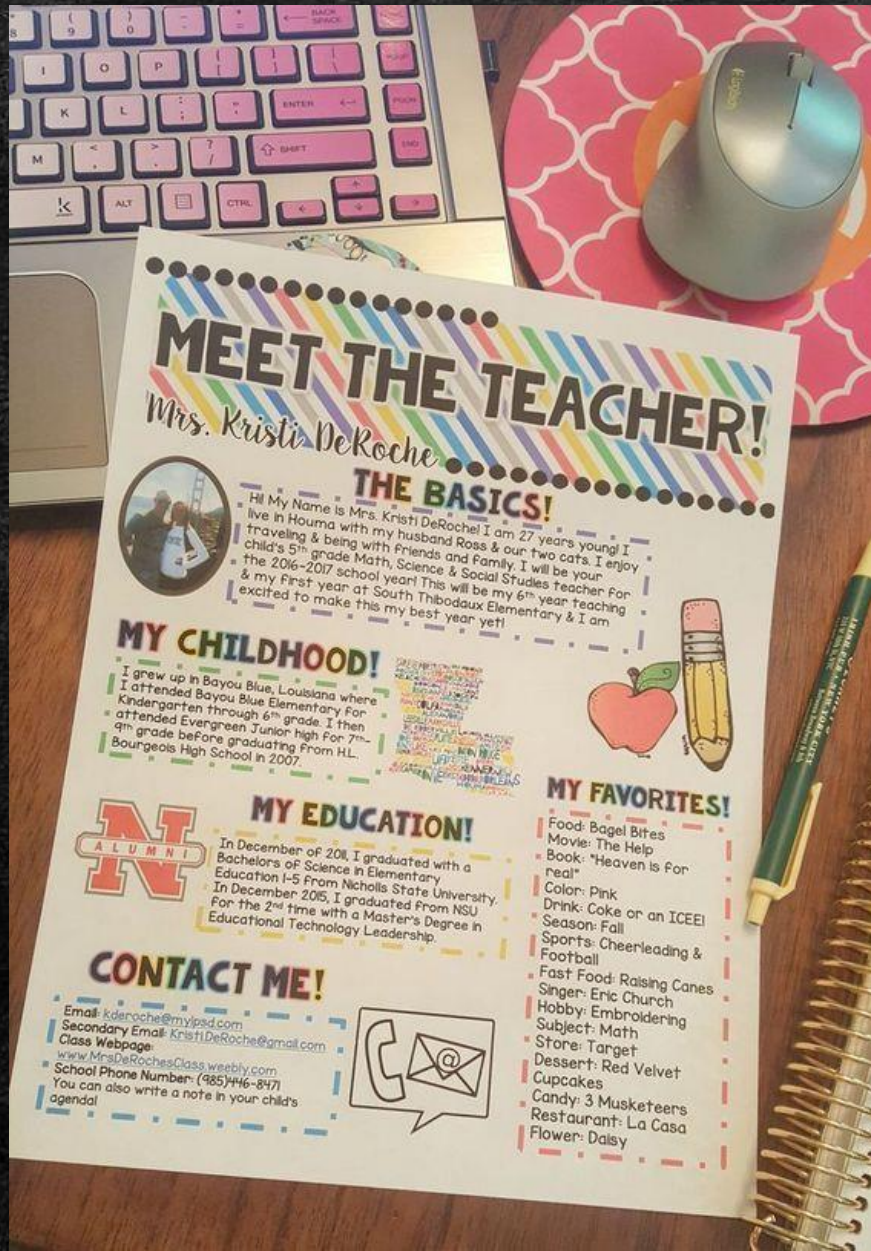 BACK SPACE
ENTER
SHIFT
END
ALT
CTRL
Logitech
MEET THE TEACHER!
Mrs. Kristi DeRoche
THE BASICS!
Hi! My Name is Mrs. Kristi DeRoche! I am 27 years young! I
live in Houma with my husband Ross & our two cats. I enjoy
traveling & being with friends and family. I will be your
child's 5th grade Math, Science & Social Studies teacher for
the 2016-2017 school year! This will be my 6th year teaching
& my first year at South Thibodaux Elementary & I am
excited to make this my best year yet!
MY CHILDHOOD!
I grew up in Bayou Blue, Louisiana where
I attended Bayou Blue Elementary for
Kindergarten through 6th grade. I then
attended Evergreen Junior high for 7th-
9th grade before graduating from H.L.
Bourgeois High School in 2007.
MY EDUCATION!
N
ALUMNI
In December of 2011, I graduated with a
Bachelors of Science in Elementary
Education 1-5 from Nicholls State University.
In December 2015, I graduated from NSU
for the 2nd time with a Master's Degree in
Educational Technology Leadership.
CONTACT ME!
Email: kderoche@mylpsd.com
Secondary Email: Kristi.DeRoche@gmail.com
Class Webpage:
www.MrsDeRochesClass.weebly.com
School Phone Number: (985)446-8471
You can also write a note in your child's
agenda!
@
MY FAVORITES!
Food: Bagel Bites
Movie: The Help
Book: "Heaven is for
real"
Color: Pink
Drink: Coke or an ICEE!
Season: Fall
Sports: Cheerleading &
Football
Fast Food: Raising Canes
Singer: Eric Church
Hobby: Embroidering
Subject: Math
Store: Target
Dessert: Red Velvet
Cupcakes
Candy: 3 Musketeers
Restaurant: La Casa
Flower: Daisy